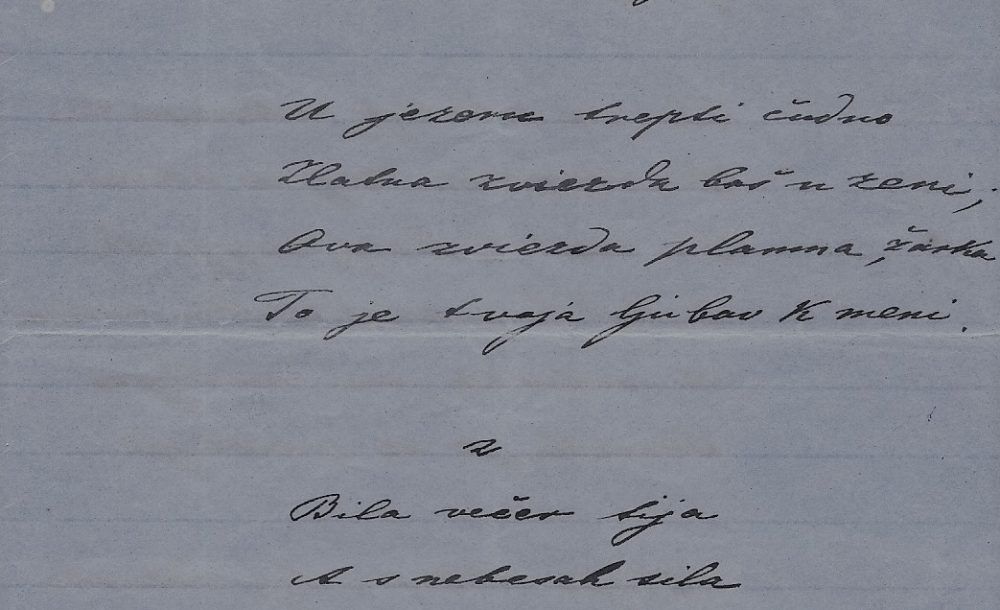 U jezeru trepti čudno
Zlatna zviezda baš u zeni;
Ova zviezda plamna, žarka
To je tvoja ljubav k meni.
2
Bila večer tija
A s nebesah sila